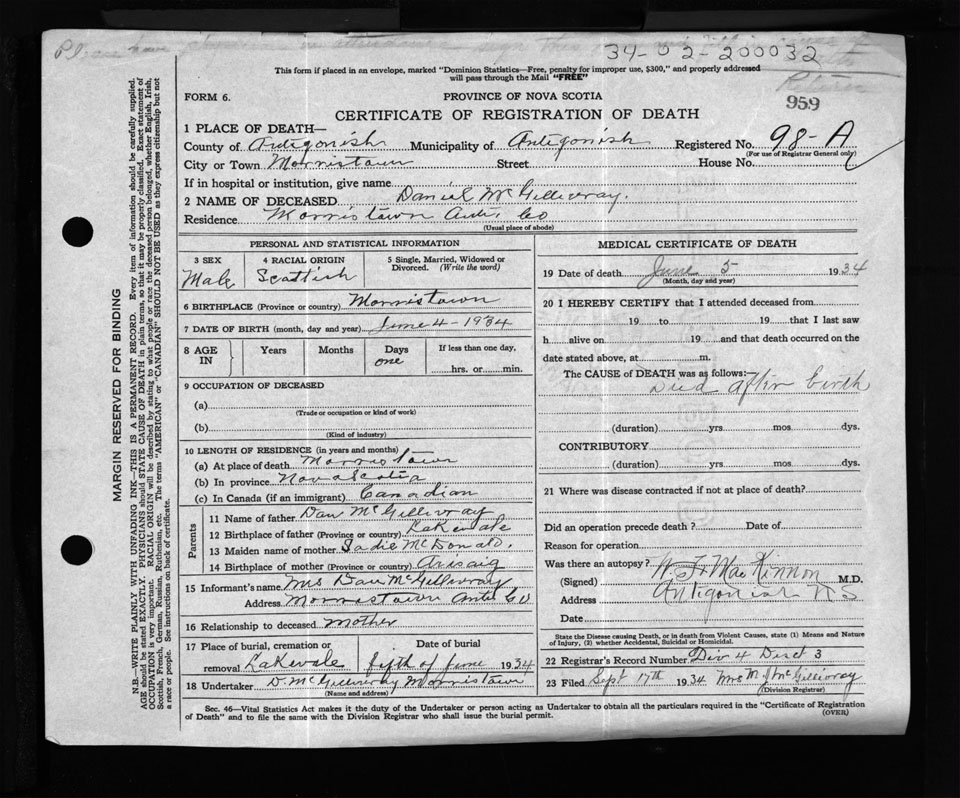 34-02-200032
This form if placed in an envelope, marked "Dominion Statistics—Free, penalty for improper use, $300," and properly addressed
will pass through the Mail "FREE"
959
FORM 6.
PROVINCE OF NOVA SCOTIA
CERTIFICATE OF REGISTRATION OF DEATH
1 PLACE OF DEATH—
County of Antigonish Municipality of Antigonish Registered No. 98-A
(For use of Registrar General only)
City or Town Morristown Street House No.
If in hospital or institution, give name
2 NAME OF DECEASED Daniel McGillivray.
Residence Morristown Anti. Co
(Usual place of abode)
PERSONAL AND STATISTICAL INFORMATION
3 SEX
Male
4 RACIAL ORIGIN
Scottish
5 Single, Married, Widowed or
Divorced. (Write the word)
6 BIRTHPLACE (Province or country) Morristown
7 DATE OF BIRTH (month, day and year) June 4-1934
8 AGE
IN
Years
Months
Days
one
If less than one day,
hrs. or min.
9 OCCUPATION OF DECEASED
(a)
(Trade or occupation or kind of work)
(b)
(Kind of industry)
10 LENGTH OF RESIDENCE (in years and months)
(a) At place of death Morristown
(b) In province Nova Scotia
(c) In Canada (if an immigrant) Canadian
Parents
11 Name of father Dan McGillivray
12 Birthplace of father (Province or country) Lakevale
13 Maiden name of mother Sadie McDonald.
14 Birthplace of mother (Province or country) Arisaig
15 Informant's name Mrs Dan McGillivray
Address Morristown Anti Co
16 Relationship to deceased Mother
17 Place of burial, cremation or
removal Lakevale
Date of burial
fifth of June 1934
18 Undertaker D. McGillivray Morristown
(Name and address)
MEDICAL CERTIFICATE OF DEATH
19 Date of death June 5 1934
(Month, day and year)
20 I HEREBY CERTIFY that I attended deceased from
19 to 19 that I last saw
h alive on 19 and that death occurred on the
date stated above, at m.
The CAUSE of DEATH was as follows:
Died after birth
(duration) yrs mos dys.
CONTRIBUTORY
(duration) yrs. mos. dys.
21 Where was disease contracted if not at place of death?
Did an operation precede death? Date of
Reason for operation
Was there an autopsy?
(Signed) W.F. MacKinnon M.D.
Address Antigonish N.S
Date
State the Disease causing Death, or in death from Violent Causes, state (1) Means and Nature
of Injury, (2) whether Accidental, Suicidal or Homicidal.
22 Registrar's Record Number Div 4 Disct 3
23 Filed Sept 17th 1934 Mrs M J McGillivray
(Division Registrar)
Sec. 46—Vital Statistics Act makes it the duty of the Undertaker or person acting as Undertaker to obtain all the particulars required in the "Certificate of Registration
of Death" and to file the same with the Division Registrar who shall issue the burial permit.
(OVER)
MARGIN RESERVED FOR BINDING
N.B.—WRITE PLAINLY WITH UNFADING INK—THIS IS A PERMANENT RECORD. Every item of information should be carefully supplied.
AGE should be stated EXACTLY. PHYSICIANS should STATE CAUSE OF DEATH in plain terms, so that it may be properly classified. Exact statement of
OCCUPATION is very important. RACIAL ORIGIN will be described by stating to what people or race the deceased person belonged, whether English, Irish,
Scottish, French, German, Russian, Ruthenian, etc. The terms "AMERICAN" or "CANADIAN" SHOULD NOT BE USED as they express citizenship but not
a race or people. See instructions on back of certificate.